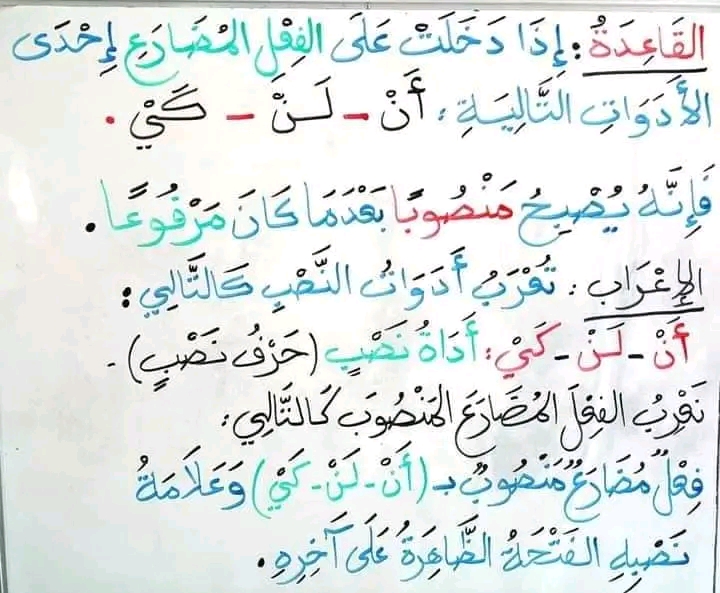 القَاعِدَةُ : إِذَا دَخَلَتْ عَلَى الفِعْلِ المُضَارِعِ إِحْدَى
الأَدَوَاتِ التَّالِيَةِ : أَنْ - لَنْ - كَيْ .
فَإِنَّهُ يُصْبِحُ مَنْصُوبًا بَعْدَمَا كَانَ مَرْفُوعًا .
الإِعْرَاب : تُعْرَبُ أَدَوَاتُ النَّصْبِ كَالتَّالِي :
أَنْ - لَنْ - كَيْ : أَدَاةُ نَصْبٍ (حَرْفُ نَصْبٍ) .
نُعْرِبُ الفِعْلَ المُضَارِعَ المَنْصُوبَ كَالتَّالِي :
فِعْلٌ مُضَارِعٌ مَنْصُوبٌ بـ (أَنْ - لَنْ - كَيْ) وَعَلَامَةُ
نَصْبِهِ الفَتْحَةُ الظَّاهِرَةُ عَلَى آخِرِهِ .